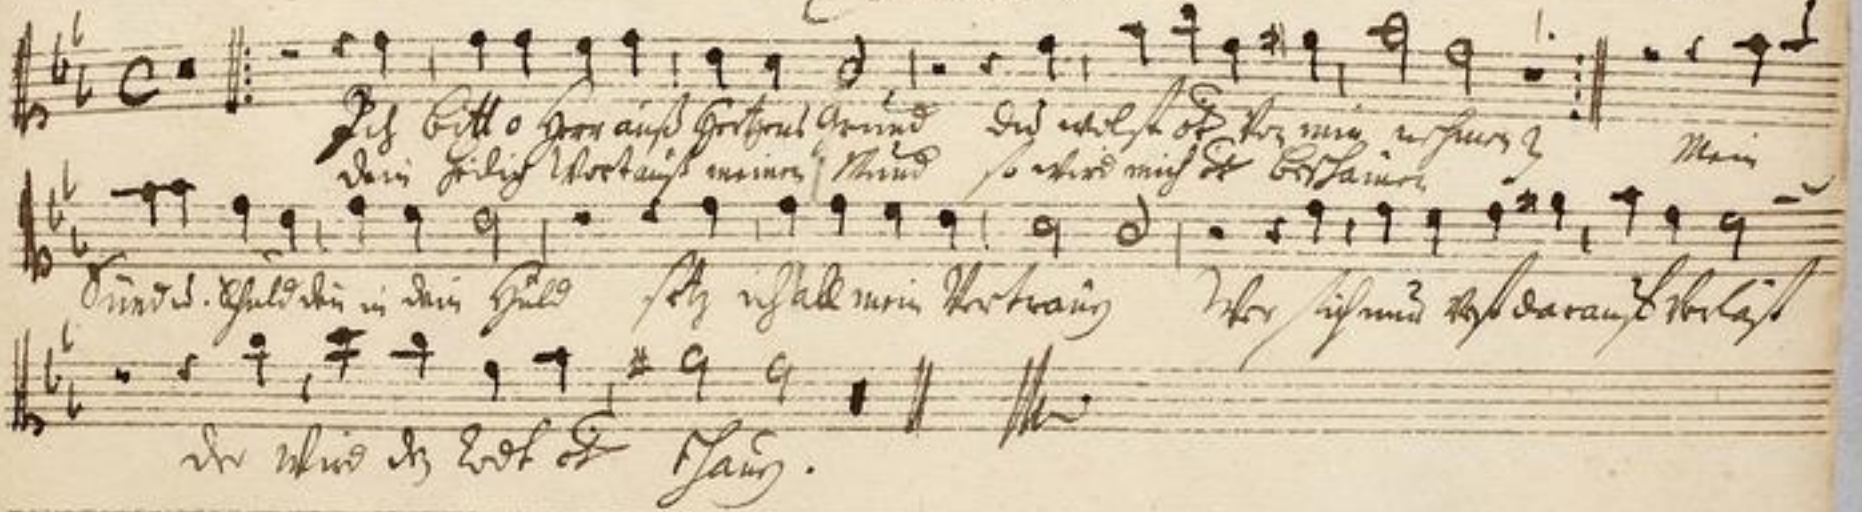 Ich bitt o Herr auß Hertzens Grund du wilst nit von mir nehmen
dein heilig Wort auß meinem Mund so wird mich nit beschämen Mein
Sünd u. Schuld den in dein Huld setz ich all mein Vertrauen Wer sich nur vest darauff verläst
der wird den Todt nit schauen.